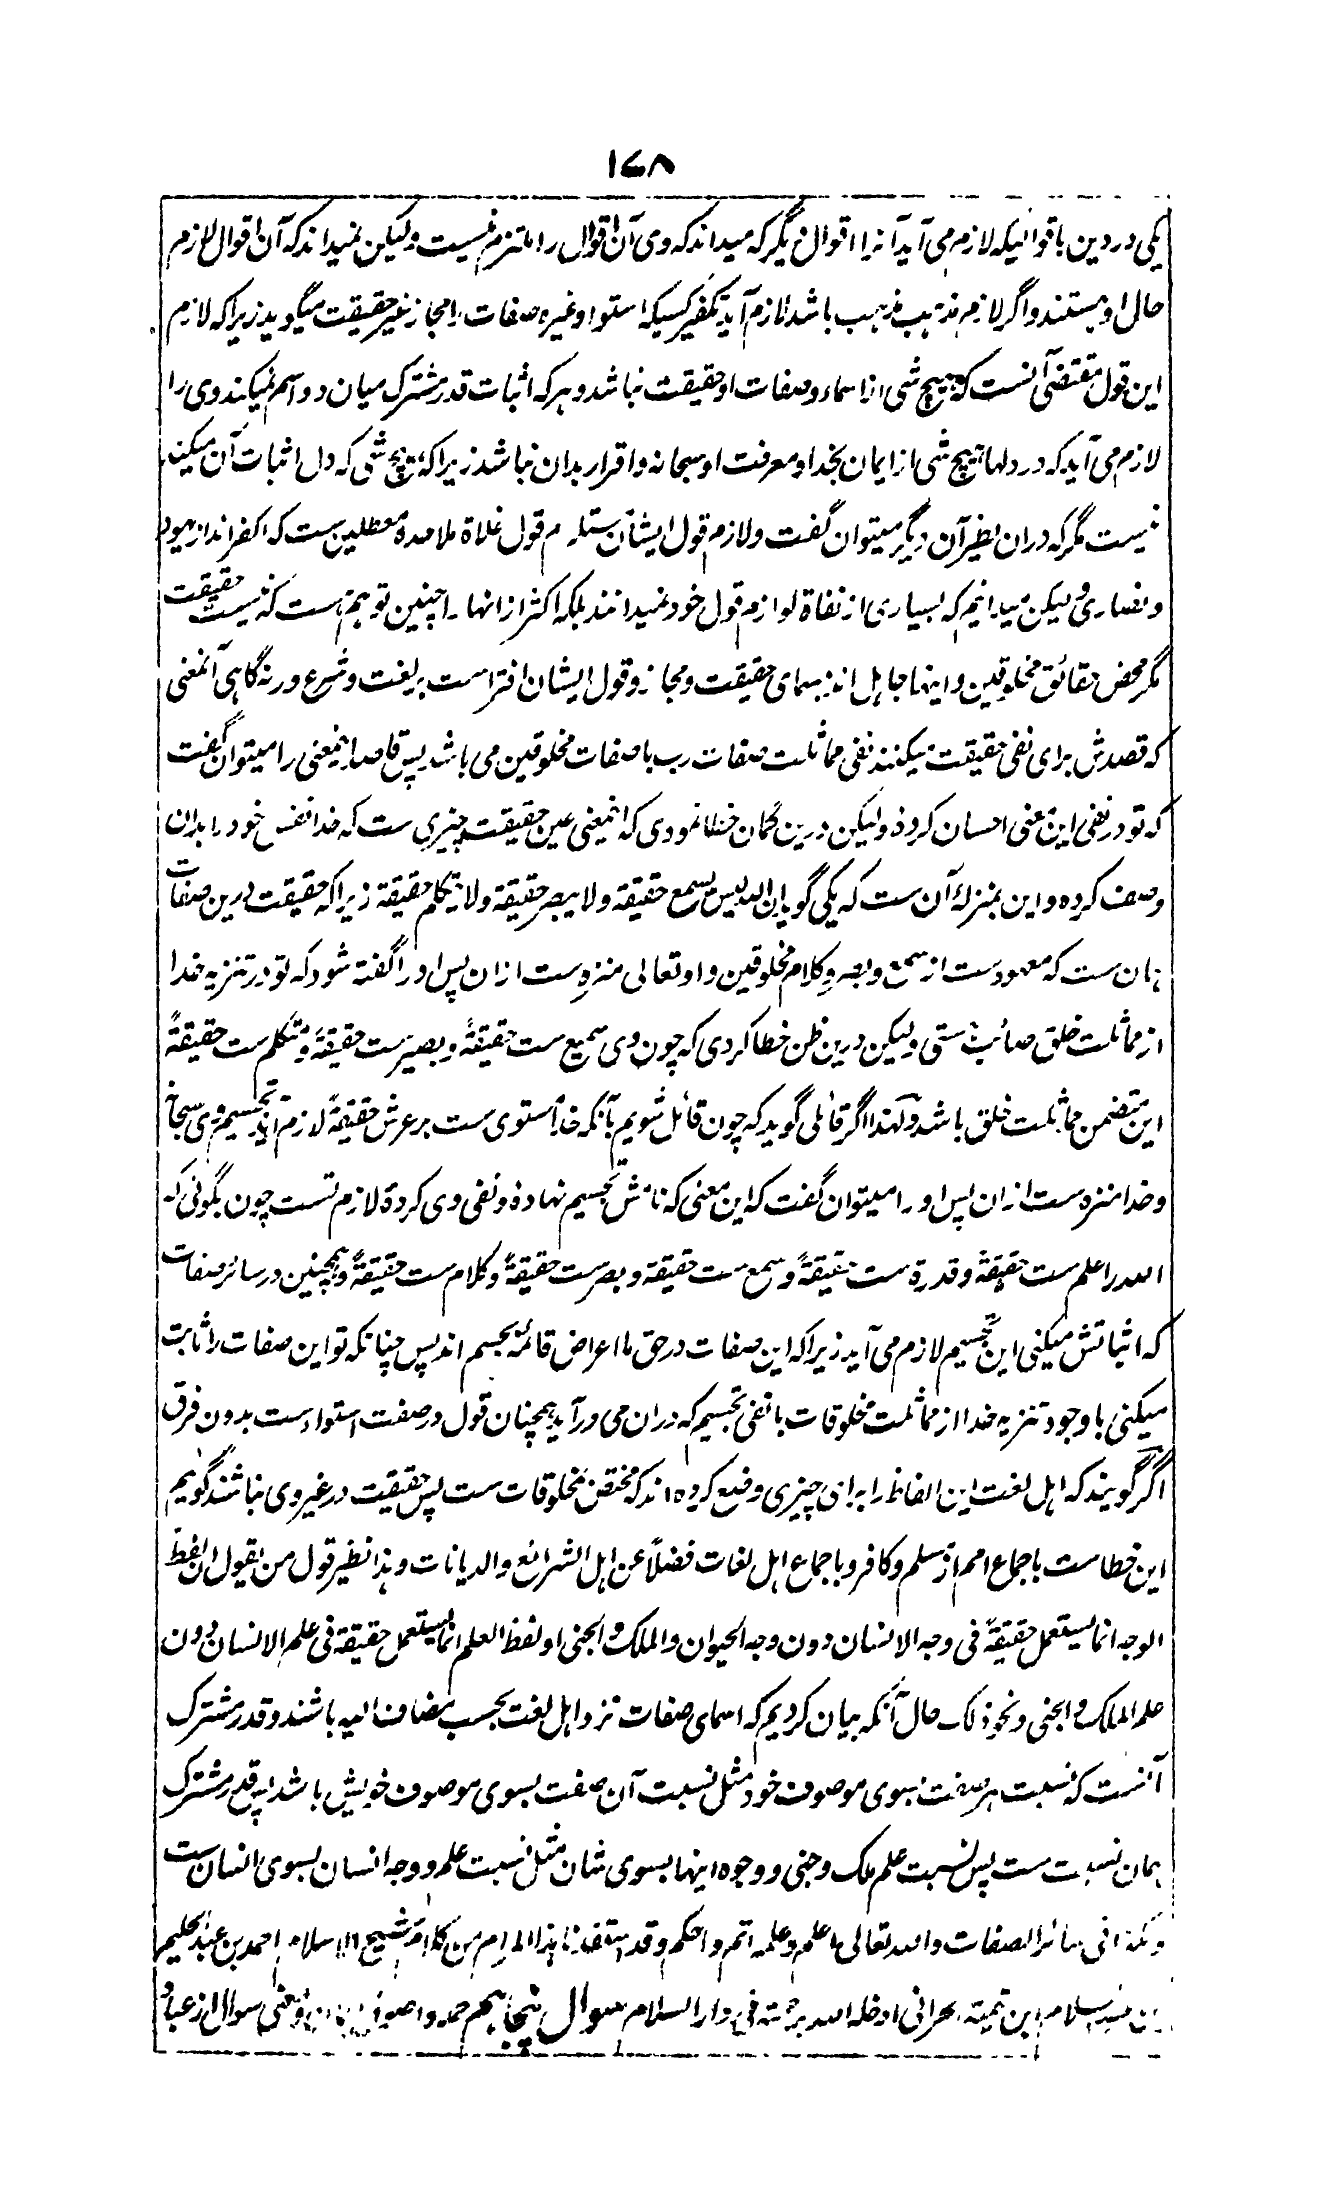 ۱۴۸
یکی در دین باقوالیکه لازم می آید آنرا اقوال دیگر که میداند که وی آن اقوال را ملتزم نیست ولیکن نمیداند که آن اقوال لازم
حال او هستند و اگر لازم مذهب مذهب باشد لازم آید تکفیر کسیکه استوا و غیره صفات را مجاز غیر حقیقت میگوید زیرا که لازم
این قول مقتضی آنست که هیچ شی از اسماء و صفات او حقیقت نباشد و هر که اثبات قدر مشترک میان دو اسم نمیکند وی را
لازم می آید که در دلها هیچ شی از ایمان بخدا و معرفت او سبحانه و اقرار بدان نباشد زیرا که هیچ شی که دل اثبات آن میکند
نیست مگر که دران نظیر آن دیگر میتوان گفت و لازم قول ایشان ستلزم قول غلاة ملاحدهٔ معطلین ست که اکفر اند از یهود
و نصاری ولیکن میدانیم که بسیاری از نفاة لوازم قول خود نمیدانند بلکه اکثر ازانها را چنین توهم ست که نیست حقیقت
مگر محض حقائق مخلوقین و اینها جاهل اند بسمای حقیقت و مجاز و قول ایشان افتراست بر لغت و شرع ورنه گاهی آنمعنی
که قصدش برای نفی حقیقت میکنند نفی مماثلت صفات رب با صفات مخلوقین می باشد پس قاصد اینمعنی را میتوان گفت
که تو در نفی این معنی احسان کردهٔ ولیکن درین گمان خطا نمودی که اینمعنی عین حقیقت چیزی ست که خدا نفس خود را بدان
وصف کرده و این بمنزلهٔ آن ست که یکی گوید ان الله لیس یسمع حقیقة ولا یبصر حقیقة ولا یتکلم حقیقة زیرا که حقیقت درین صفات
همان ست که معهودست از سمع و بصر و کلام مخلوقین و او تعالی منزه ست ازان پس او را گفته شود که تو در تنزیه خدا
از مماثلت خلق صائب هستی ولیکن درین ظن خطا کردی که چون وی سمیع ست حقیقةً و بصیرست حقیقةً و متکلم ست حقیقةً
این متضمن مماثلت خلق باشد ولهذا اگر قائلی گوید که چون قائل شویم بآنکه خدا مستوی ست بر عرش حقیقةً لازم آید تجسیم وی سبحانه
و خدا منزه ست ازان پس او را میتوان گفت که این معنی که نامش تجسیم نهادهٔ و نفی وی کردهٔ لازم تست چون بگوئی که
الله را علم ست حقیقةً و قدرة ست حقیقةً و سمع ست حقیقة و بصرست حقیقةً و کلام ست حقیقةً و همچنین در سائر صفات
که اثباتش میکنی این تجسیم لازم می آید زیرا که این صفات در حق ما اعراض قائمه بجسم اند پس چنانکه تو این صفات را ثابت
میکنی با وجود تنزیه خدا از مماثلت مخلوقات با نفی تجسیم که دران می در آید همچنان قول در صفت استواءست بدون فرق
اگر گویند که اهل لغت این الفاظ را برای چیزی وضع کرده اند که مختص بمخلوقات ست پس حقیقت در غیر وی نباشند گوئیم
این خطاست باجماع امم از مسلم و کافر و باجماع اهل لغات فضلاً عن اهل الشرائع والدیانات و هذا نظیر قول من یقول ان لفظ
الوجه انما یستعمل حقیقةً فی وجه الانسان دون وجه الحیوان والملک والجنی او لفظ العلم انما یستعمل حقیقة فی علم الانسان دون
علم الملک والجنی ونحو ذلک حال آنکه بیان کردیم که اسمای صفات نزد اهل لغت بحسب مضاف الیه باشند و قدر مشترک
آنست که نسبت هر صفت بسوی موصوف خود مثل نسبت آن صفت بسوی موصوف خویش باشد پس قدر مشترک
همان نسبت ست پس نسبت علم ملک و جنی و وجوه اینها بسوی شان مثل نسبت علم و وجه انسان بسوی انسان ست
وهکذا فی سائر الصفات والله تعالی اعلم وعلمه اتم واحکم وقد استفدنا هذا المرام من کلام شیخ الاسلام احمد بن عبدالحلیم
بن عبدالسلام ابن تیمیه الحرانی ادخله الله برحمته فی دار السلام سوال پنجاهم حمد و معنی سوال از عباد